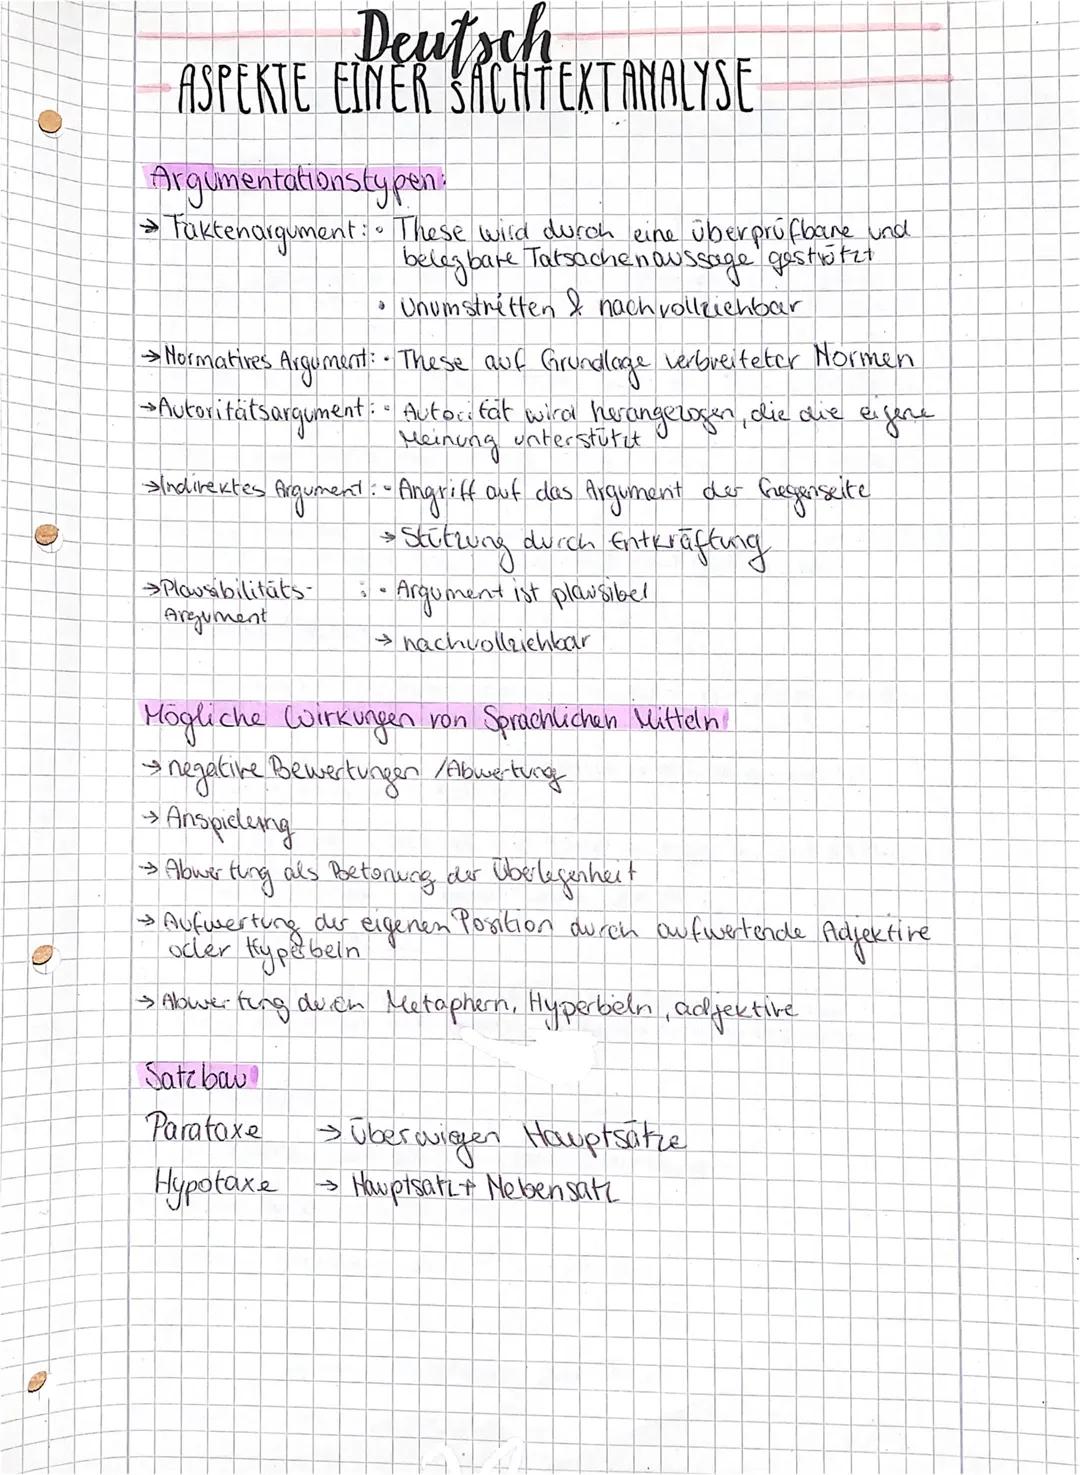 Deutsch
ASPEKTE EINER SACHTEXTANALYSE
Argumentationstypen:
→ Faktenargument: • These wird durch eine überprüfbare und
belegbare Tatsachenaussage gestützt
• Unumstritten & nachvollziehbar
→ Normatives Argument: • These auf Grundlage verbreiteter Normen
→ Autoritätsargument: • Autorität wird herangezogen, die die eigene
Meinung unterstützt
→ Indirektes Argument: • Angriff auf das Argument der Gegenseite
→ Stützung durch Entkräftung
→ Plausibilitäts- : • Argument ist plausibel
Argument
→ nachvollziehbar
Mögliche Wirkungen von Sprachlichen Mitteln
→ negative Bewertungen / Abwertung
→ Anspielung
→ Abwertung als Betonung der Überlegenheit
→ Aufwertung der eigenen Position durch aufwertende Adjektive
oder Hyperbeln
→ Abwertung durch Metaphern, Hyperbeln, adjektive
Satzbau
Parataxe → Überwiegen Hauptsätze
Hypotaxe → Hauptsatz + Nebensatz